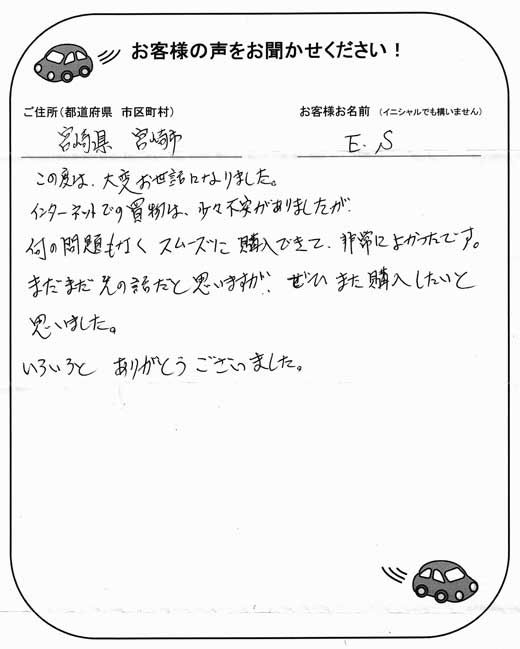 お客様の声をお聞かせください！
ご住所（都道府県　市区町村）
お客様お名前（イニシャルでも構いません）
宮崎県　宮崎市
E.S
この度は、大変お世話になりました。
インターネットでの買物は、少々不安がありましたが、
何の問題もなく　スムーズに　購入できて、非常によかったです。
まだまだ先の話だと思いますが、ぜひまた購入したいと
思いました。
いろいろと　ありがとうございました。